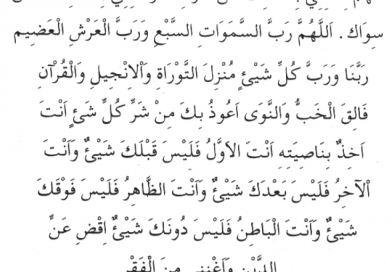 سِوَاكَ . اَللَّهُمَّ رَبَّ السَّمَوَاتِ السَّبْعِ وَرَبَّ الْعَرْشِ الْعَضِيمِ
رَبَّنَا وَرَبَّ كُلِّ شَيْئٍ مُنْزِلَ التَّوْرَاةِ وَاْلاِنْجِيلِ وَالْقُرْآنِ
فَالِقَ الْخَبُّ وَالنَّوَى اَعُوذُ بِكَ مِنْ شَرِّ كُلِّ شَئٍ اَنْتَ
اَخِذٌ بِنَاصِيَتِهِ اَنْتَ الاَوَّلُ فَلَيْسَ قَبْلَكَ شَيْئٌ وَاَنْتَ
اْلآخِرُ فَلَيْسَ بَعْدَكَ شَيْئٌ وَاَنْتَ الظَّاهِرُ فَلَيْسَ فَوْقَكَ
شَيْئٌ وَاَنْتَ الْبَاطِنُ فَلَيْسَ دُونَكَ شَيْئٌ اِقْضِ عَنِّ
الدَّيْنَ وَاَغْنِنِى مِنَ الْفَقْرِ